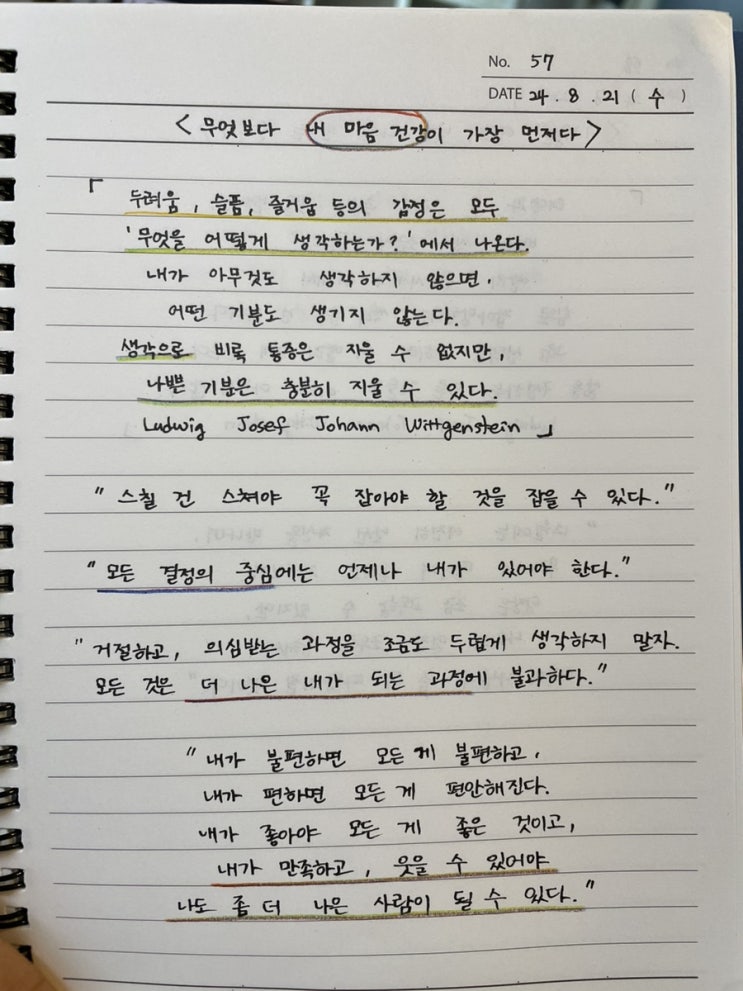 No. 57
DATE 24. 8. 21 ( 수 )
< 무엇보다 내 마음 건강이 가장 먼저다 >
「 두려움, 슬픔, 즐거움 등의 감정은 모두
'무엇을 어떻게 생각하는가?'에서 나온다.
내가 아무것도 생각하지 않으면.
어떤 기분도 생기지 않는다.
생각으로 비롯 통증은 지울 수 없지만,
나쁜 기분은 충분히 지울 수 있다.
Ludwig Josef Johann Wittgenstein 」
"스칠 건 스쳐야 꼭 잡아야 할 것을 잡을 수 있다."
"모든 결정의 중심에는 언제나 내가 있어야 한다."
"거절하고, 의심받는 과정을 조금도 두렵게 생각하지 말자.
모든 것은 더 나은 내가 되는 과정에 불과하다."
"내가 불편하면 모든 게 불편하고,
내가 편하면 모든 게 편안해진다.
내가 좋아야 모든 게 좋은 것이고,
내가 만족하고, 웃을 수 있어야
나도 좀 더 나은 사람이 될 수 있다."